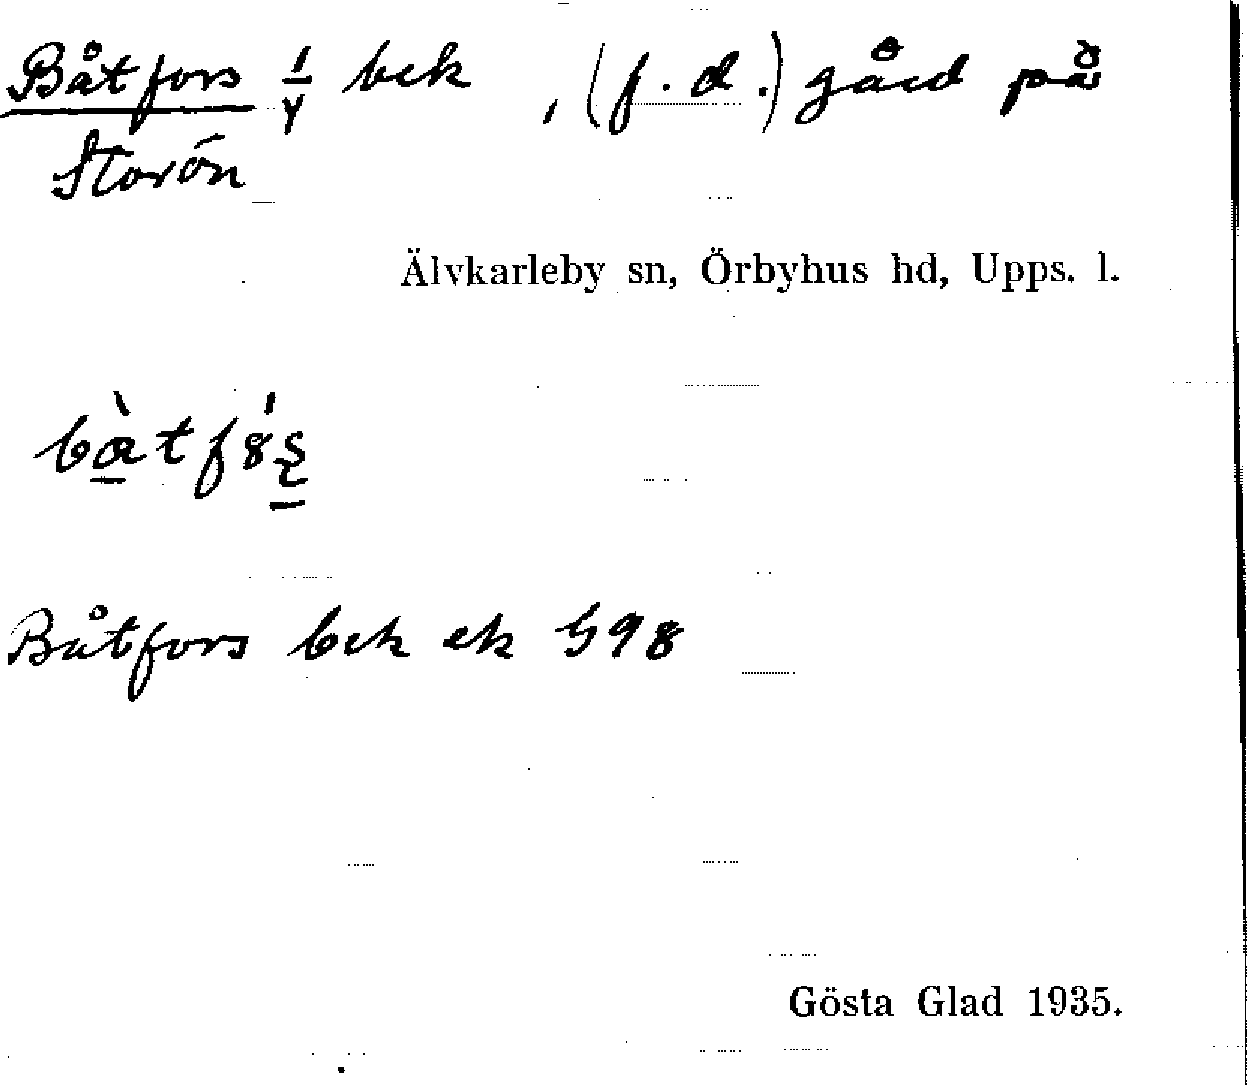 Båtfors 1/4 bek , (f. d.) gård på
Storön
Älvkarleby sn, Örbyhus hd, Upps. l.
Båtfors bek ek G98
Gösta Glad 1935.